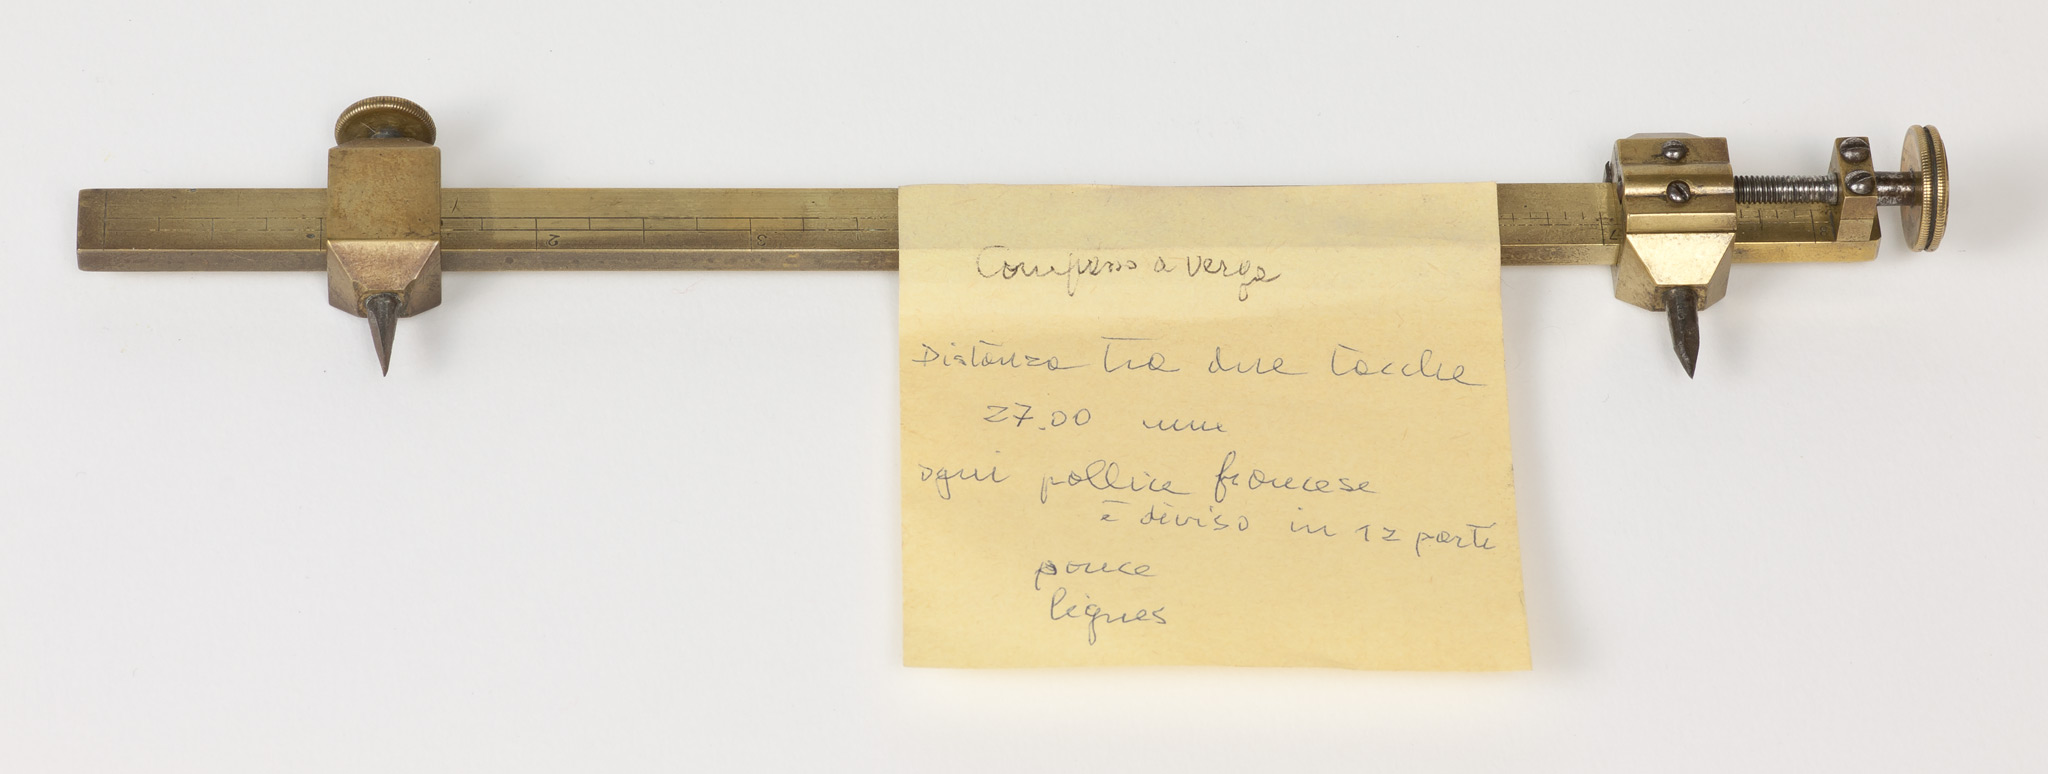 2
3
7
Compasso a verga
Distanza tra due tacche
27.00 mm
ogni pollice francese
è diviso in 12 parti
pouce
lignes